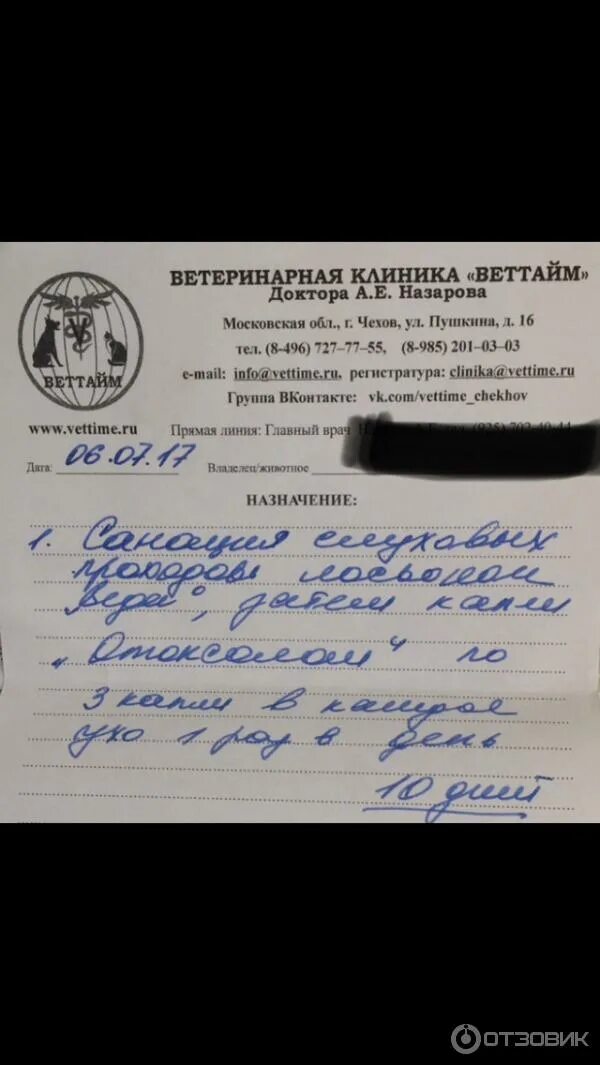 ВЕТЕРИНАРНАЯ КЛИНИКА «ВЕТТАЙМ»
Доктора А.Е. Назарова
Московская обл., г. Чехов, ул. Пушкина, д. 16
тел. (8-496) 727–77–55, (8-985) 201–03–03
e-mail: info@vettime.ru, регистратура: clinika@vettime.ru
Группа ВКонтакте: vk.com/vettime_chekhov
V
ВЕТТАЙМ
www.vettime.ru
Прямая линия: Главный врач
Дата: 06.07.17 Владелец/животное
НАЗНАЧЕНИЕ:
1. Санация слуховых
проходов лосьоном
"Веда", затем капли
„Отоксолан" по
3 капли в каждое
ухо 1 раз в день
10 дней
ОТЗОВИК